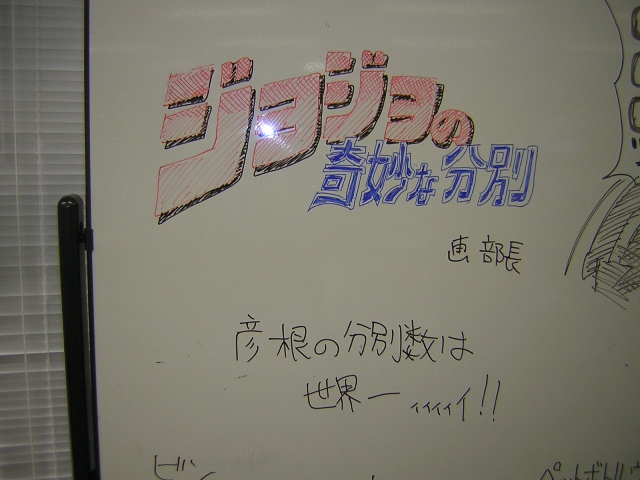 ジョジョの
奇妙な分別
画 部長
彦根の分別数は
世界一ィィィィイ!!
ビン
ペットボトル